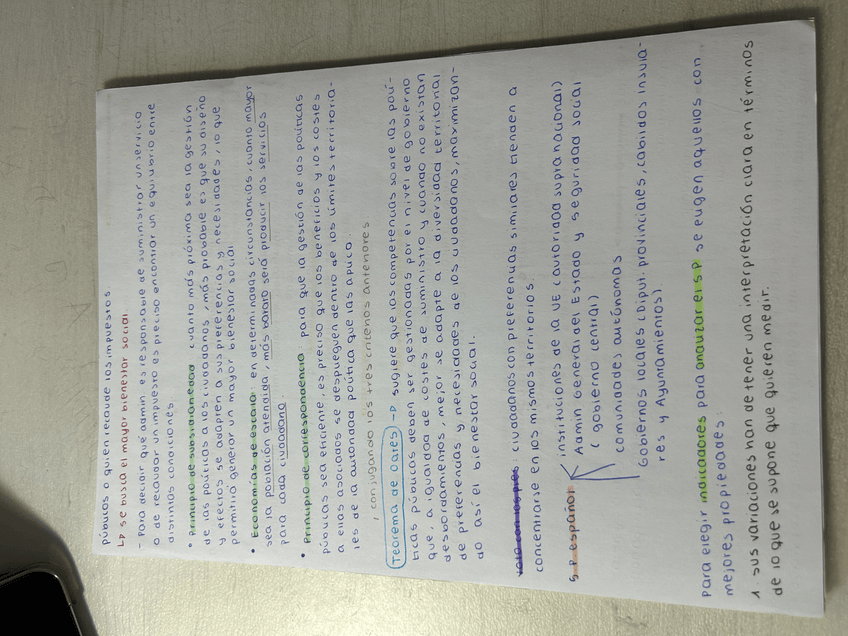 públicos o quién recauda los impuestos.
↳ se busca el mayor bienestar social.
- Para decidir qué admin. es responsable de suministrar un servicio
o de recaudar un impuesto es preciso encontrar un equilibrio entre
distintas condiciones
• Principio de subsidiariedad cuanto más próxima sea la gestión
de las políticas a los ciudadanos, más probable es que su diseño
y efectos se adapten a sus preferencias y necesidades, lo que
permitirá generar un mayor bienestar social
• Economías de escala: en determinadas circunstancias, cuanto mayor
sea la población atendida, más barato será producir los servicios
para cada ciudadano.
• Principio de correspondencia para que la gestión de las políticas
públicas sea eficiente, es preciso que los beneficios y los costes
a ellas asociados se desplieguen dentro de los límites territoria-
les de la autoridad política que las aplica.
/ conjugando los tres criterios anteriores
Teorema de Oates → sugiere que las competencias sobre las polí-
ticas públicas deben ser gestionadas por el nivel de gobierno
que, a igualdad de costes de suministro y cuando no existan
desbordamientos, mejor se adapte a la diversidad territorial
de preferencias y necesidades de los ciudadanos, maximizan-
do así el bienestar social.
voto con los pies: ciudadanos con preferencias similares tienden a
concentrarse en los mismos territorios.
S.P. español
instituciones de la UE (autoridad supranacional)
Admin General del Estado y seguridad social
(gobierno central)
comunidades autónomas
Gobiernos locales (Diput. provinciales, cabildos insula-
res y Ayuntamientos).
Para elegir indicadores para analizar el S.P se eligen aquellos con
mejores propiedades:
1. sus variaciones han de tener una interpretación clara en términos
de lo que se supone que quieren medir.